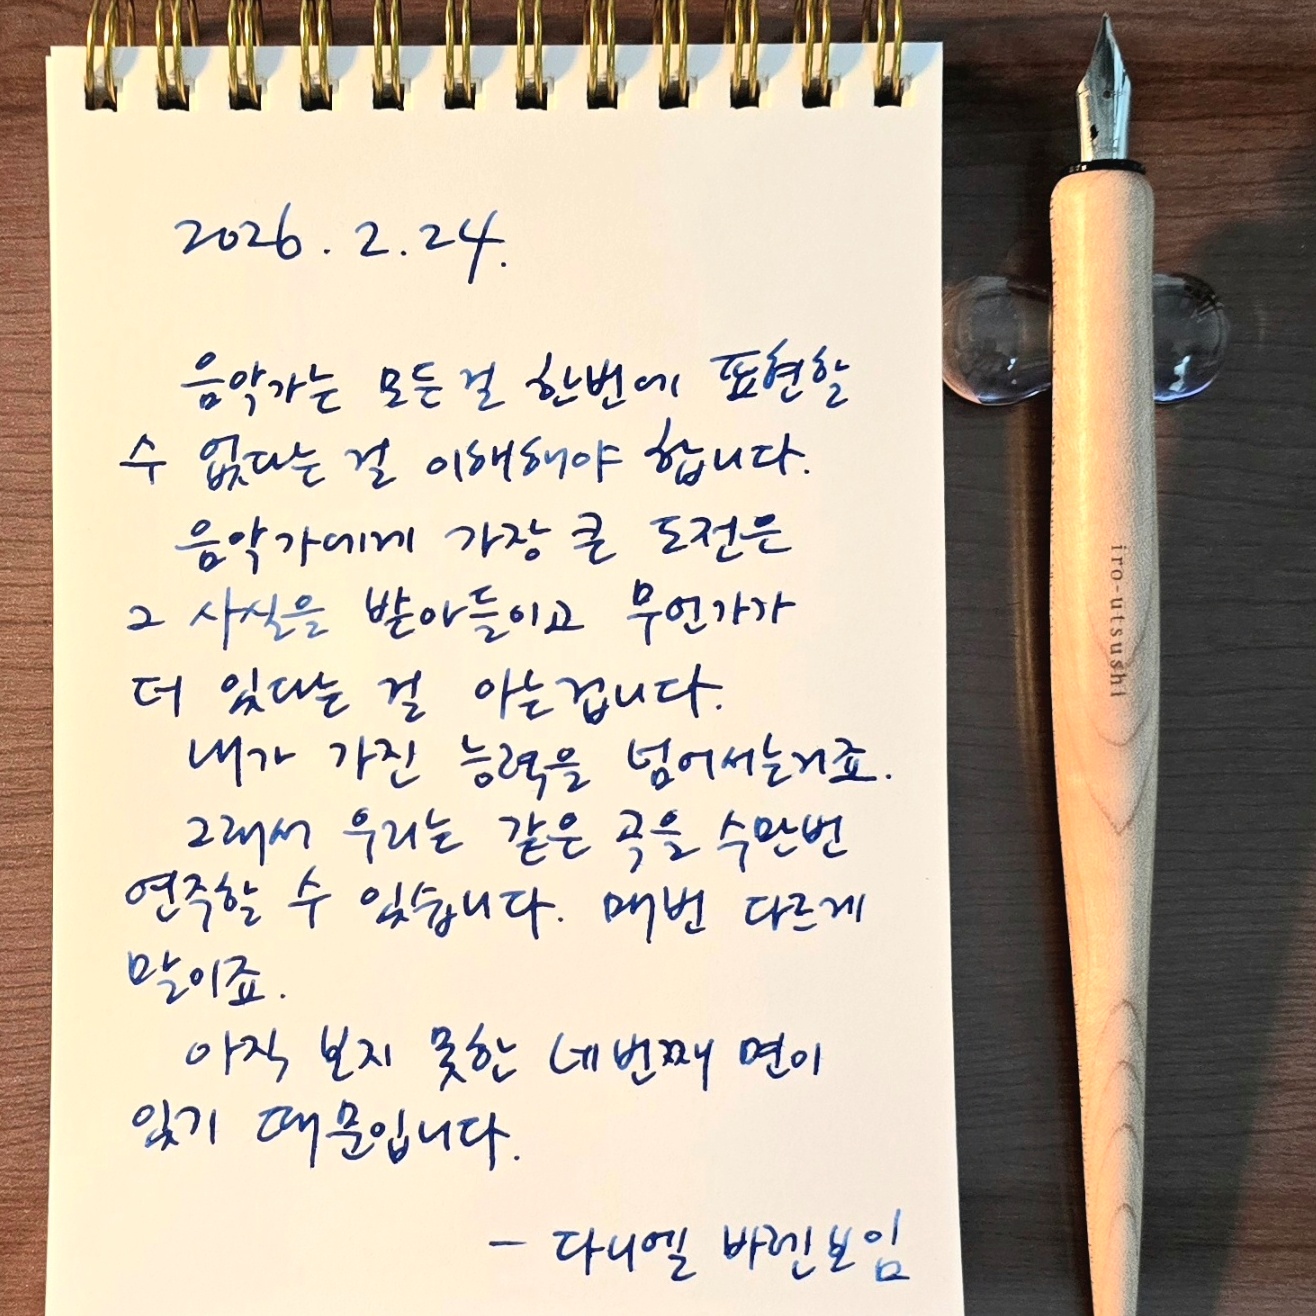 2026. 2. 24.
음악가는 모든 걸 한번에 표현할
수 없다는 걸 이해해야 합니다.
음악가에게 가장 큰 도전은
그 사실을 받아들이고 무언가가
더 있다는 걸 아는겁니다.
내가 가진 능력을 넘어서는거죠.
그래서 우리는 같은 곡을 수만번
연주할 수 있습니다. 매번 다르게
말이죠.
아직 보지 못한 네번째 면이
있기 때문입니다.
- 다니엘 바렌보임
iro-utsushi